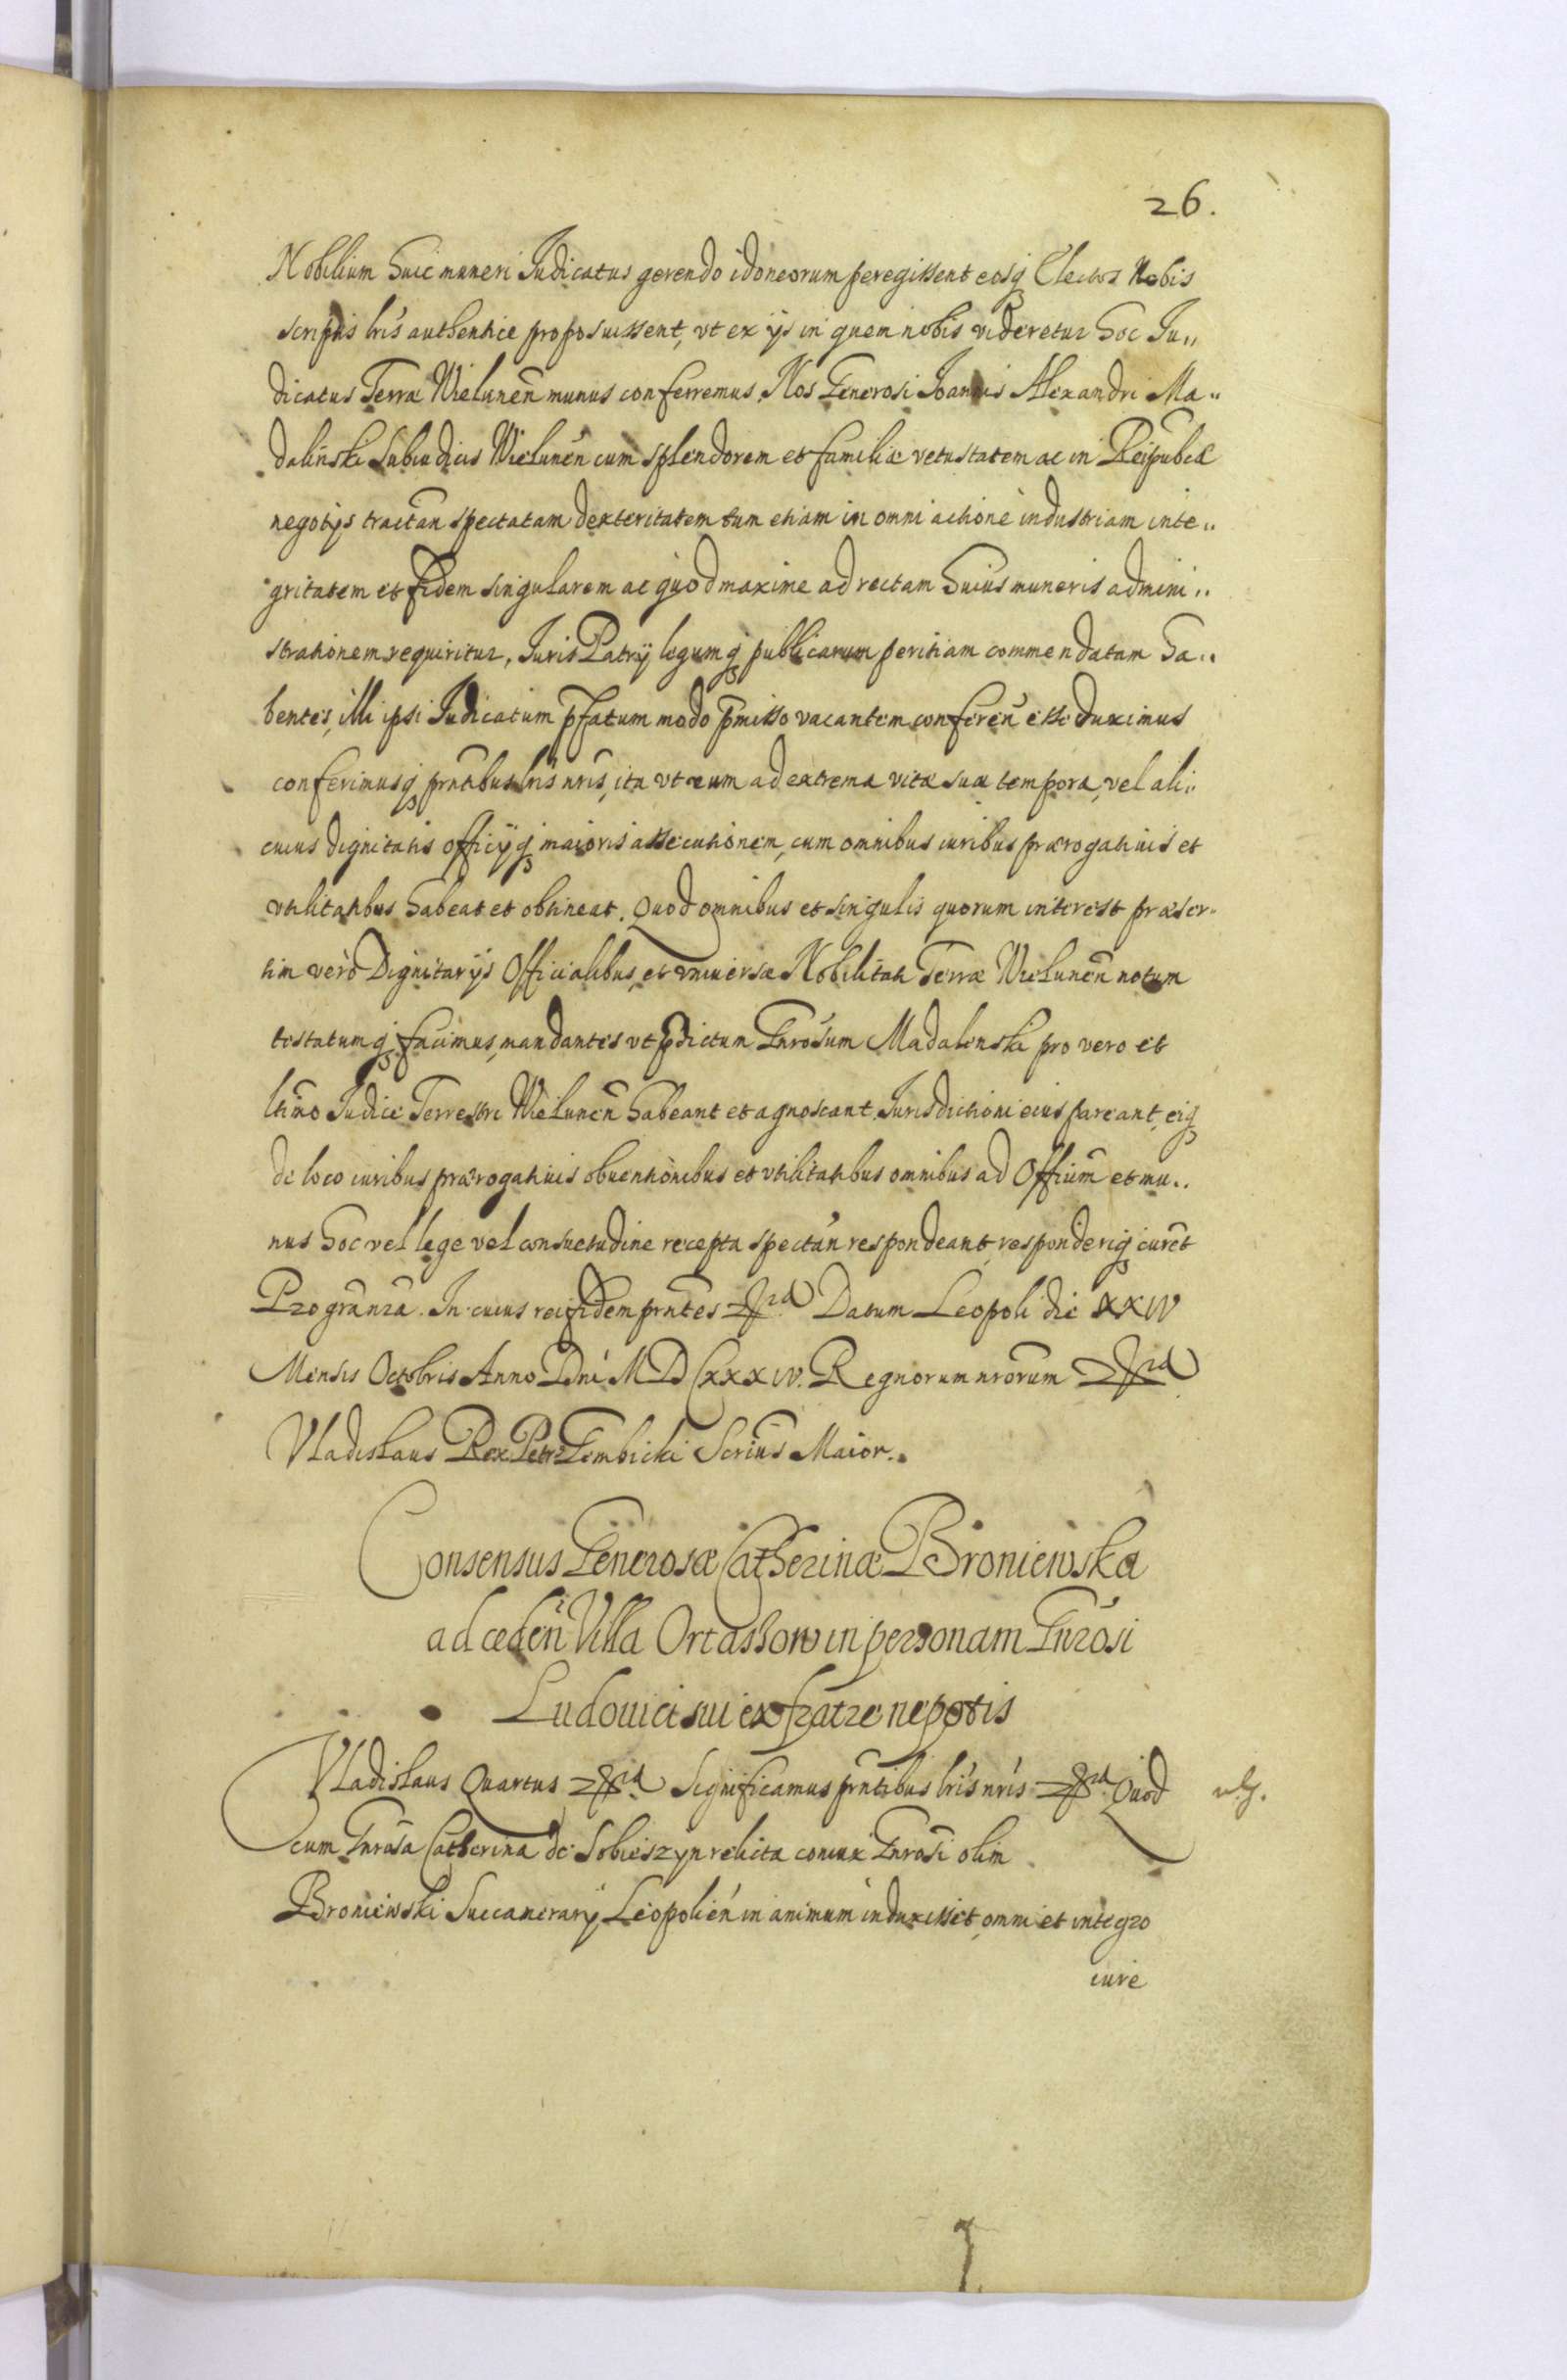 26.
Nobilium huic muneri Judicatus gerendo idoneorum peregissent eosq̢ Electos Nobis
scriptis lris authentice proposuissent, vt ex ijs in quem nobis videretur hoc Ju„
dicatus Terræ Wielunen̄ munus conferremus. Nos Generosi Joannis Alexandri Ma„
daliński Subiudicis Wielunen̄ cum splendorem et familiæ vetustatem ac in Reipublcæ
negotijs tractan̄ spectatam dexteritatem tum etiam in omni actione industriam inte„
gritatem et fidem singularem ac quod maxime ad rectam huius muneris admini„
strationem requiritur, Juris Patrij legumq̢ publicarum peritiam commendatam ha„
bentes, illi ipsi Judicatum p̄fatum modo p̄misso vacantem conferen̄ esse duximus
conferimusq̢ prn̄tibus lris nris, ita vt eum ad extrema vitæ suæ tempora, vel ali„
cuius dignitatis officijq̢ maioris assecutionem, cum omnibus iuribus prærogatiuis et
vtilitatibus habeat et obtineat. Quod omnibus et singulis quorum interest præser„
tim vero Dignitarijs Officialibus, et vniuersæ Nobilitati Terræ Wielunen̄ notum
testatumq̢ facimus, mandantes vt p̄dictum Gnrosum Madalenski pro vero et
ltimo Judice Terrestri Wielunen̄ habeant et agnoscant. Jurisdictioni eius pareant, eiq̢
de loco iuribus prærogatiuis obuentionibus et vtilitatibus omnibus ad Offium et mu„
nus hoc vel lege vel consuetudine recepta spectan̄ respondeant, responderiq̢ curet
Pro gr̄a nr̄a. In cuius rei fidem prn̄tes &ra Datum Leopoli die XXIV
Mensis Octobris Anno Dni MDCXXXIV. Regnorum nrorum &ra
Vladislaus Rex Petr Gembicki Scrius Maior.
Consensus Generosæ Catherinæ Broniewska
ad ceden̄ Villa Ortassow in personam Gnrosi
Ludouici sui ex fratre nepotis
Vladislaus Quartus &ra. Significamus prn̄tibus lris nris &ra Quod
cum Gnrosa Catherina de Sobieszyn relicta coniux Gnrosi olim
Broniewski Succamerarij Leopolien̄ in animum induxisset omni et integro
iure